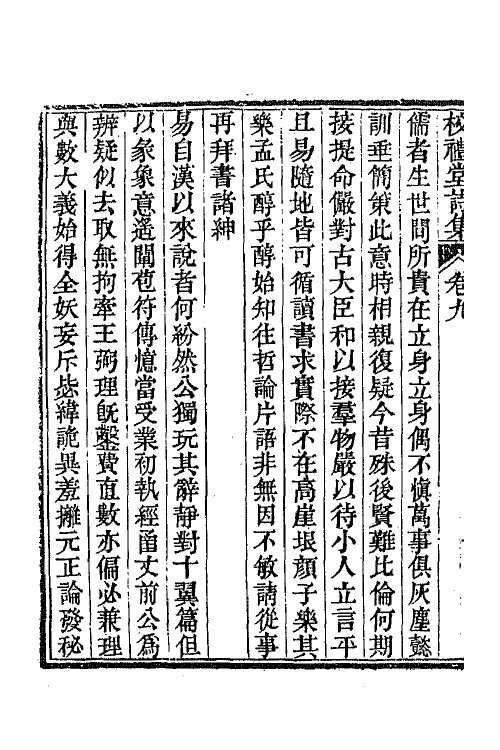 校禮堂詩集 卷九
儒者生世間所貴在立身立身偶不愼萬事俱灰塵懿
訓垂簡策此意時相親復疑今昔殊後賢難比倫何期
接提命儼對古大臣和以接羣物嚴以待小人立言平
且易隨地皆可循讀書求實際不在高崖垠顏子樂其
樂孟氏醇乎醇始知往哲論片語非無因不敏請從事
再拜書諸紳
易自漢以來說者何紛然公獨玩其辭靜對十翼篇但
以象象意遙闡苞符傳憶當受業初執經函丈前公爲
辨疑似去取無拘牽王弼理旣鑿費直數亦偏必兼理
與數大義始得全妖妄斥毖緯詭異羞擁元正論發秘